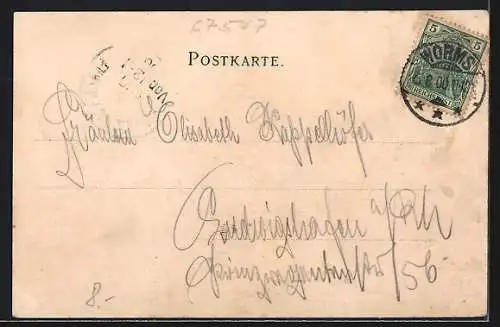 67547
POSTKARTE.
5
WORMS
Fräulein Elisabeth Kappelhöfer
Ludwigshafen a/Rh
Prinzregentenstr 56
8.-